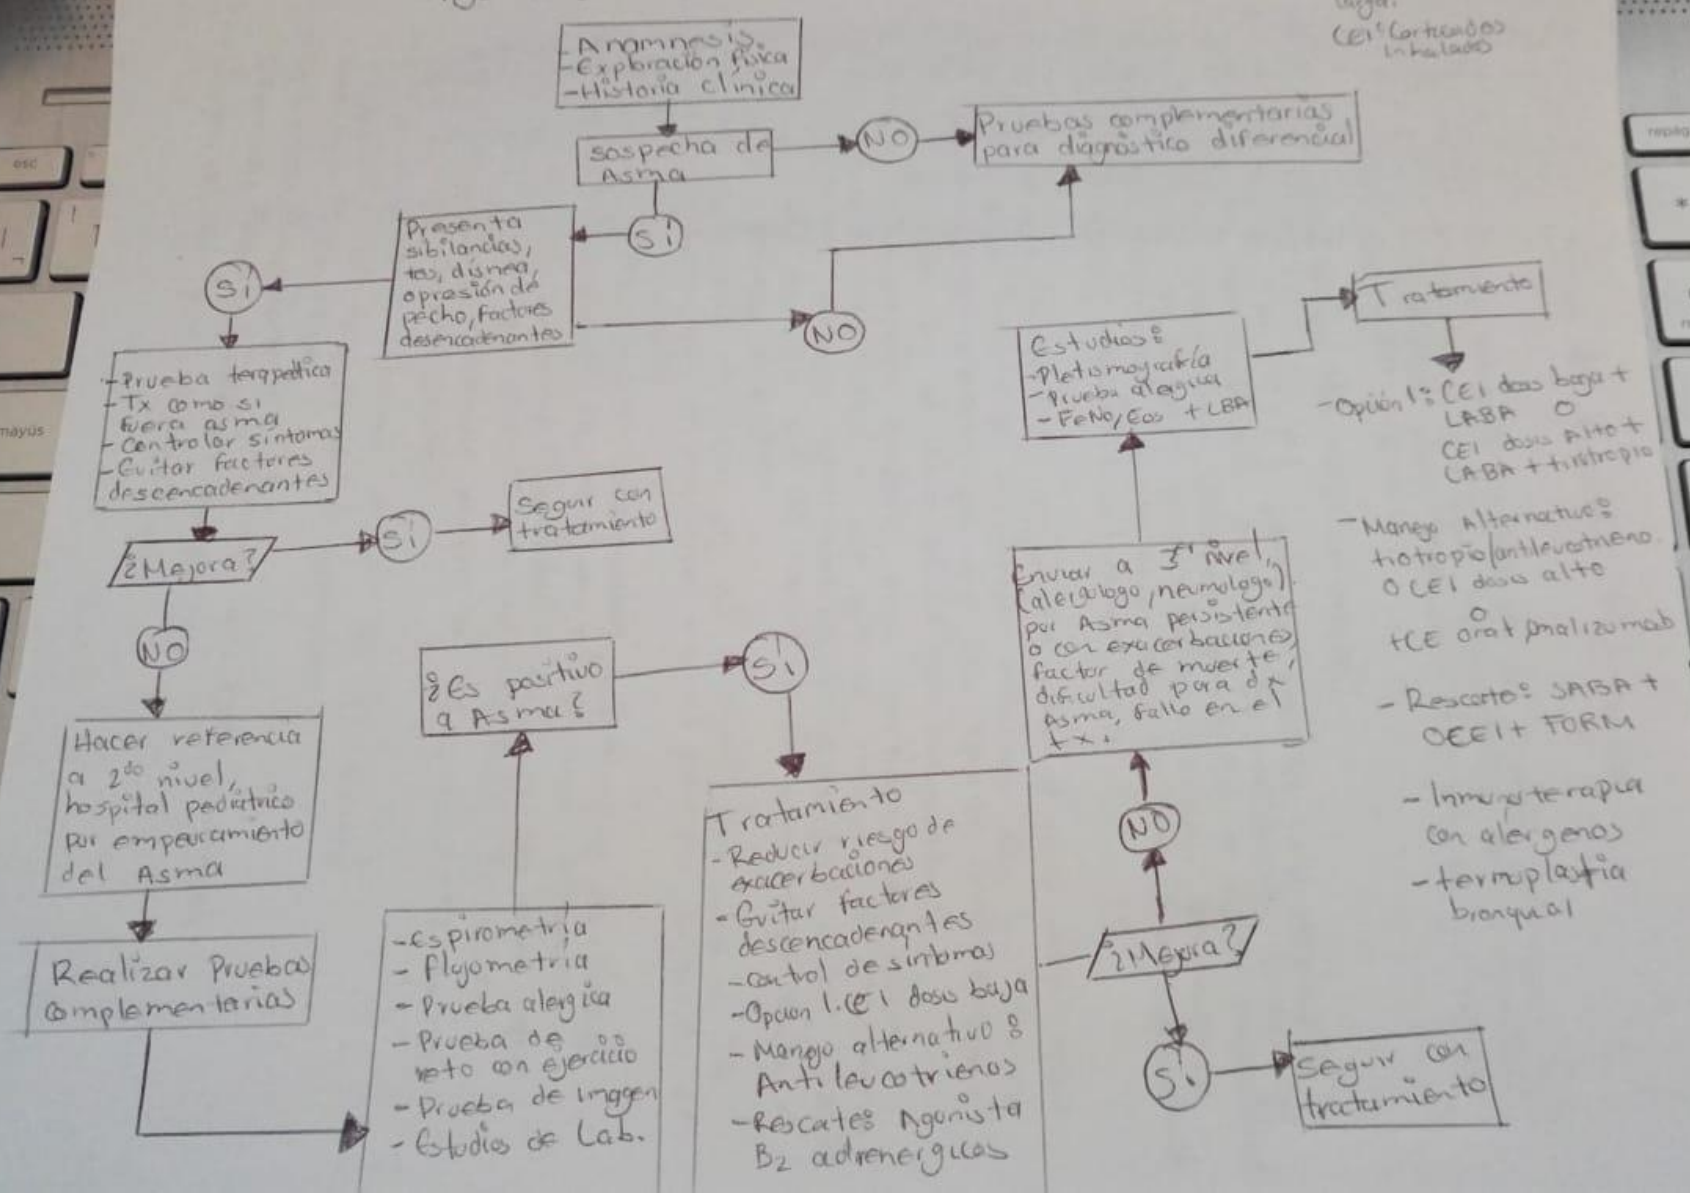 CEI: Corticoides
Inhalados
- Anamnesis
- Exploración física
- Historia clínica
sospecha de
Asma
NO
Pruebas complementarias
para diagnóstico diferencial
Sí
Presenta
sibilancias,
tos, disnea,
opresión de
pecho, factores
desencadenantes
Sí
NO
- Prueba terapeútica
- Tx como si
fuera asma
- Controlar síntomas
- Evitar factores
descencadenantes
¿Mejora?
Sí
Seguir con
tratamiento
NO
Hacer referencia
a 2do nivel,
hospital pediátrico
por empeoramiento
del Asma
Realizar Pruebas
complementarias
- Espirometría
- Flujometría
- Prueba alergica
- Prueba de
reto con ejercicio
- Prueba de imagen
- Estudios de Lab.
¿Es positivo
a Asma?
Sí
Tratamiento
- Reducir riesgo de
exacerbaciones
- Evitar factores
descencadenantes
- control de síntomas
- Opcion 1. CEI dosis baja
- Manejo alternativo:
Antileucotrienos
- Rescate: Agonista
B2 adrenergicos
¿Mejora?
Sí
Seguir con
tractamiento
NO
Enviar a 3er nivel,
(alergologo, neumologo)
por Asma persistente
o con exacerbaciones,
factor de muerte,
dificultad para dx
Asma, fallo en el
tx.
Estudios:
- Pletismografía
- Prueba alergica
- FeNo, Eos + LBA
Tratamiento
- Opción 1: CEI dosis baja +
LABA O
CEI dosis Alto +
LABA + tiotropio
- Manejo Alternativo:
tiotropio/antileucotrieno
O CEI dosis alto
O
+CE oral omalizumab
- Rescate: SABA +
FORM
- Inmunoterapia
con alérgenos
- termoplastia
bronquial